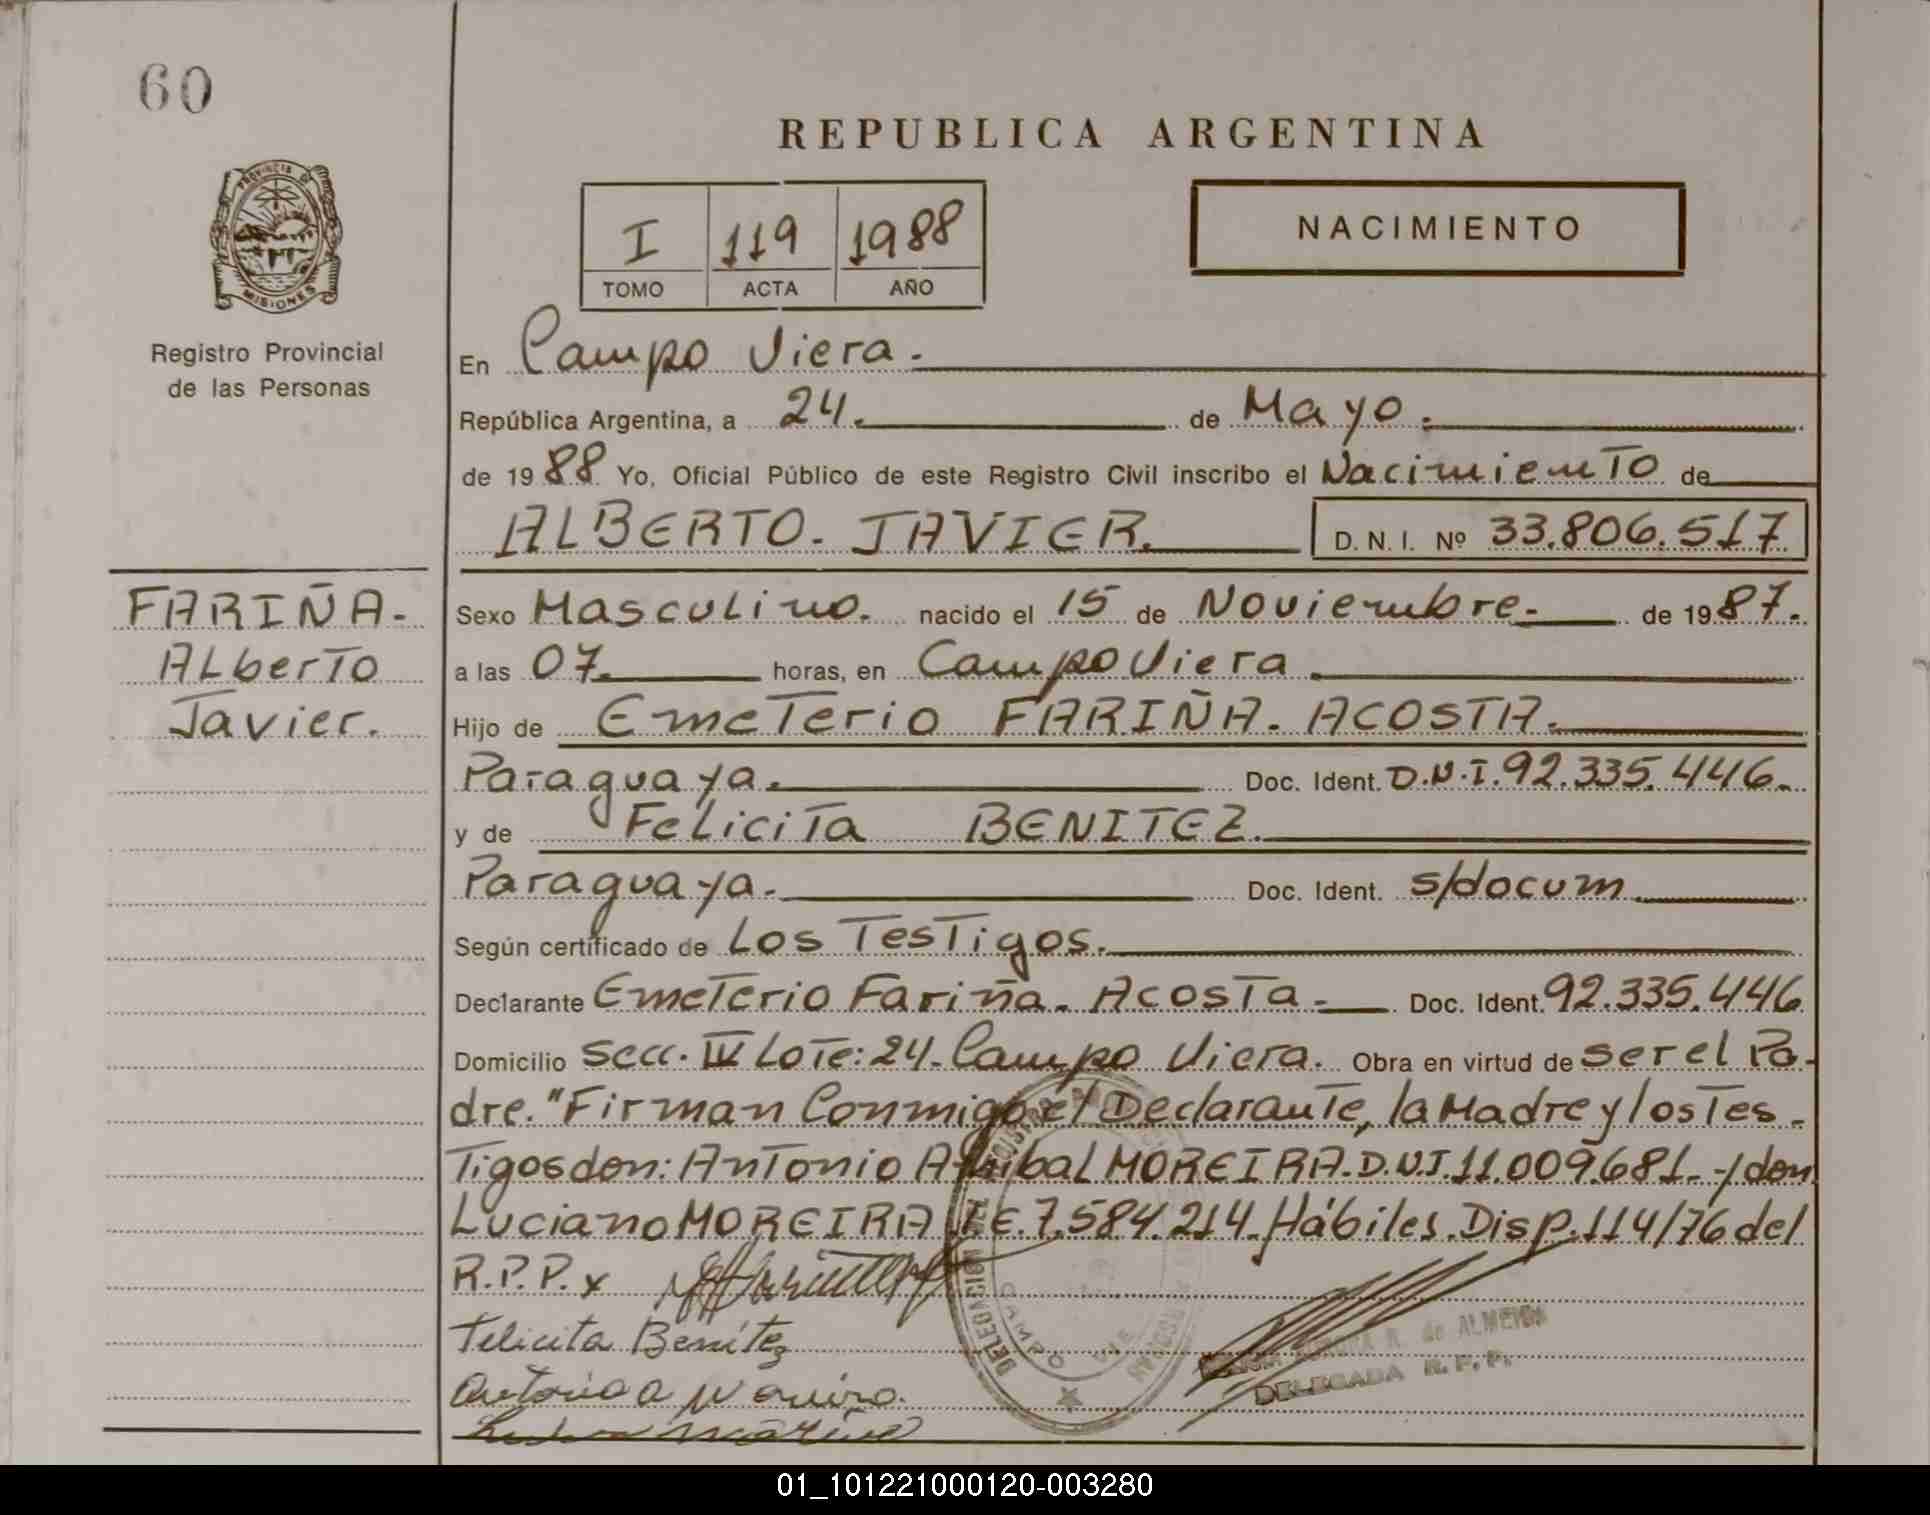 60
REPUBLICA ARGENTINA
PROVINCIA DE
MISIONES
Registro Provincial
de las Personas
I 119 1988
TOMO ACTA AÑO
NACIMIENTO
En Campo Viera.
República Argentina, a 24. de Mayo.
de 19 88 Yo, Oficial Público de este Registro Civil inscribo el Nacimiento de
ALBERTO. JAVIER.
D. N. I. Nº 33.806.517
FARIÑA.
Alberto
Javier.
Sexo Masculino. nacido el 15 de Noviembre. de 19 87.
a las 07. horas, en Campo Viera
Hijo de Emeterio FARIÑA. ACOSTA.
Paraguaya. Doc. Ident. D.N.I. 92.335.446.
y de Felicita BENITEZ.
Paraguaya. Doc. Ident. s/docum
Según certificado de Los Testigos.
Declarante Emeterio Fariña. Acosta. Doc. Ident. 92.335.446
Domicilio Secc. IV Lote: 24. Campo Viera. Obra en virtud de Ser el Pa-
dre. "Firman Conmigo el Declarante, la Madre y los Tes-
Tigos don: Antonio Anibal MOREIRA. D.N.I. 11.009.681. y don
Luciano MOREIRA L.E. 7.584.214. Hábiles. Disp. 114/76 del
R.P.P. x
Felicita Benítez
R. de ALMEIDA
DELEGADA R. P. P.
DELEGACION
CAMPO VIE
01_101221000120-003280